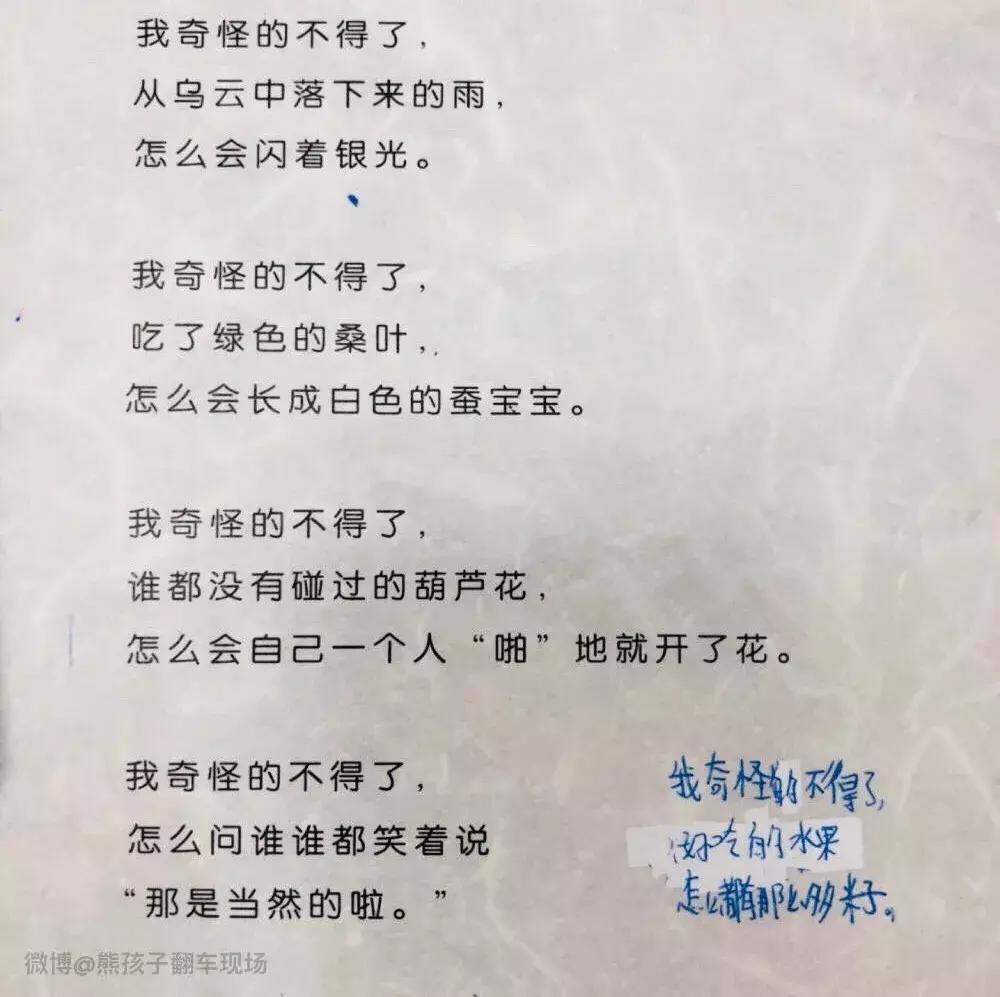 我奇怪的不得了，
从乌云中落下来的雨，
怎么会闪着银光。
我奇怪的不得了，
吃了绿色的桑叶，
怎么会长成白色的蚕宝宝。
我奇怪的不得了，
谁都没有碰过的葫芦花，
怎么会自己一个人“啪”地就开了花。
我奇怪的不得了，
怎么问谁谁都笑着说
“那是当然的啦。”
我奇怪的不得了，
好吃的水果
怎么都有那么多籽子。
微博@熊孩子翻车现场